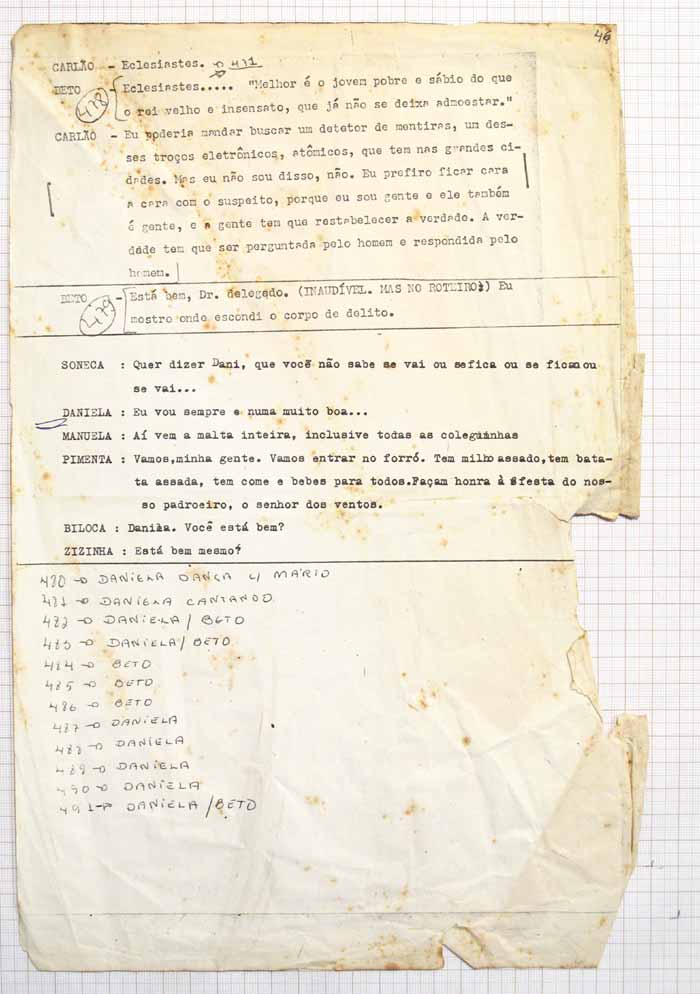 46
CARLÃO - Eclesiastes. → 477
BETO - Eclesiastes..... "Melhor é o jovem pobre e sábio do que
478
o rei velho e insensato, que já não se deixa admoestar."
CARLÃO - Eu poderia mandar buscar um detetor de mentiras, um des-
ses troços eletrônicos, atômicos, que tem nas grandes ci-
dades. Mas eu não sou disso, não. Eu prefiro ficar cara
a cara com o suspeito, porque eu sou gente e ele também
é gente, e a gente tem que restabelecer a verdade. A ver-
dade tem que ser perguntada pelo homem e respondida pelo
homem.
BETO - Está bem, Dr. delegado. (INAUDÍVEL. MAS NO ROTEIRO:) Eu
479
mostro onde escondi o corpo de delito.
SONECA : Quer dizer Dani, que você não sabe se vai ou sefica ou se ficouou
se vai...
DANIELA : Eu vou sempre e numa muito boa...
MANUELA : Aí vem a malta inteira, inclusive todas as coleguinhas
PIMENTA : Vamos,minha gente. Vamos entrar no forró. Tem milho assado,tem bata-
ta assada, tem come e bebes para todos.Façam honra à festa do nos-
so padroeiro, o senhor dos ventos.
BILOCA : Daniela. Você está bem?
ZIZINHA : Está bem mesmo?
480 → DANIELA DANÇA C/ MÁRIO
481 → DANIELA CANTANDO
482 → DANIELA / BETO
483 → DANIELA / BETO
484 → BETO
485 → BETO
486 → BETO
487 → DANIELA
488 → DANIELA
489 → DANIELA
490 → DANIELA
491 → DANIELA / BETO